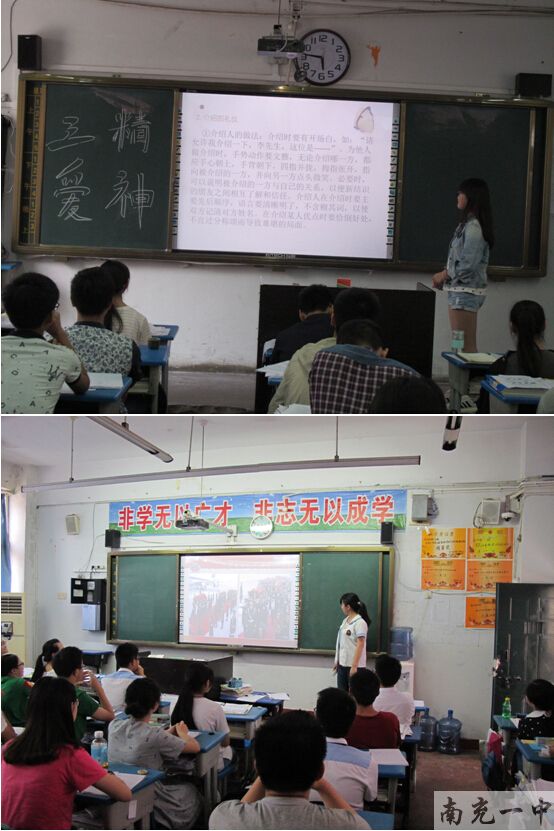 精神
五爱
2.介绍的礼仪
①介绍人的做法：介绍时要有开场白。如：“请
允许我介绍一下，李先生，这位是——”。为他人
做介绍时，手势动作要文雅，无论介绍哪一方，都
应手心朝上，手背朝下，四指并拢，拇指张开，指
向被介绍的一方，并向另一方点头微笑。必要时，
可以说明被介绍的一方与自己的关系，以便新结识
的朋友之间相互了解和信任。介绍人在介绍时要注
要先后顺序，语言要清晰明了，不含糊其词，以使
双方记清对方姓名。在介绍某人优点时要恰到好处，
不宜过分称颂而导致难堪的局面。
非学无以广才 非志无以成学
南充一中